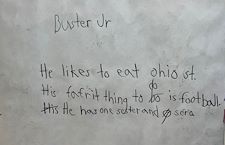 Buster Jr
He likes to eat ohio st.
His fafrit thing to do is football.
His He has one setter and 0 sers